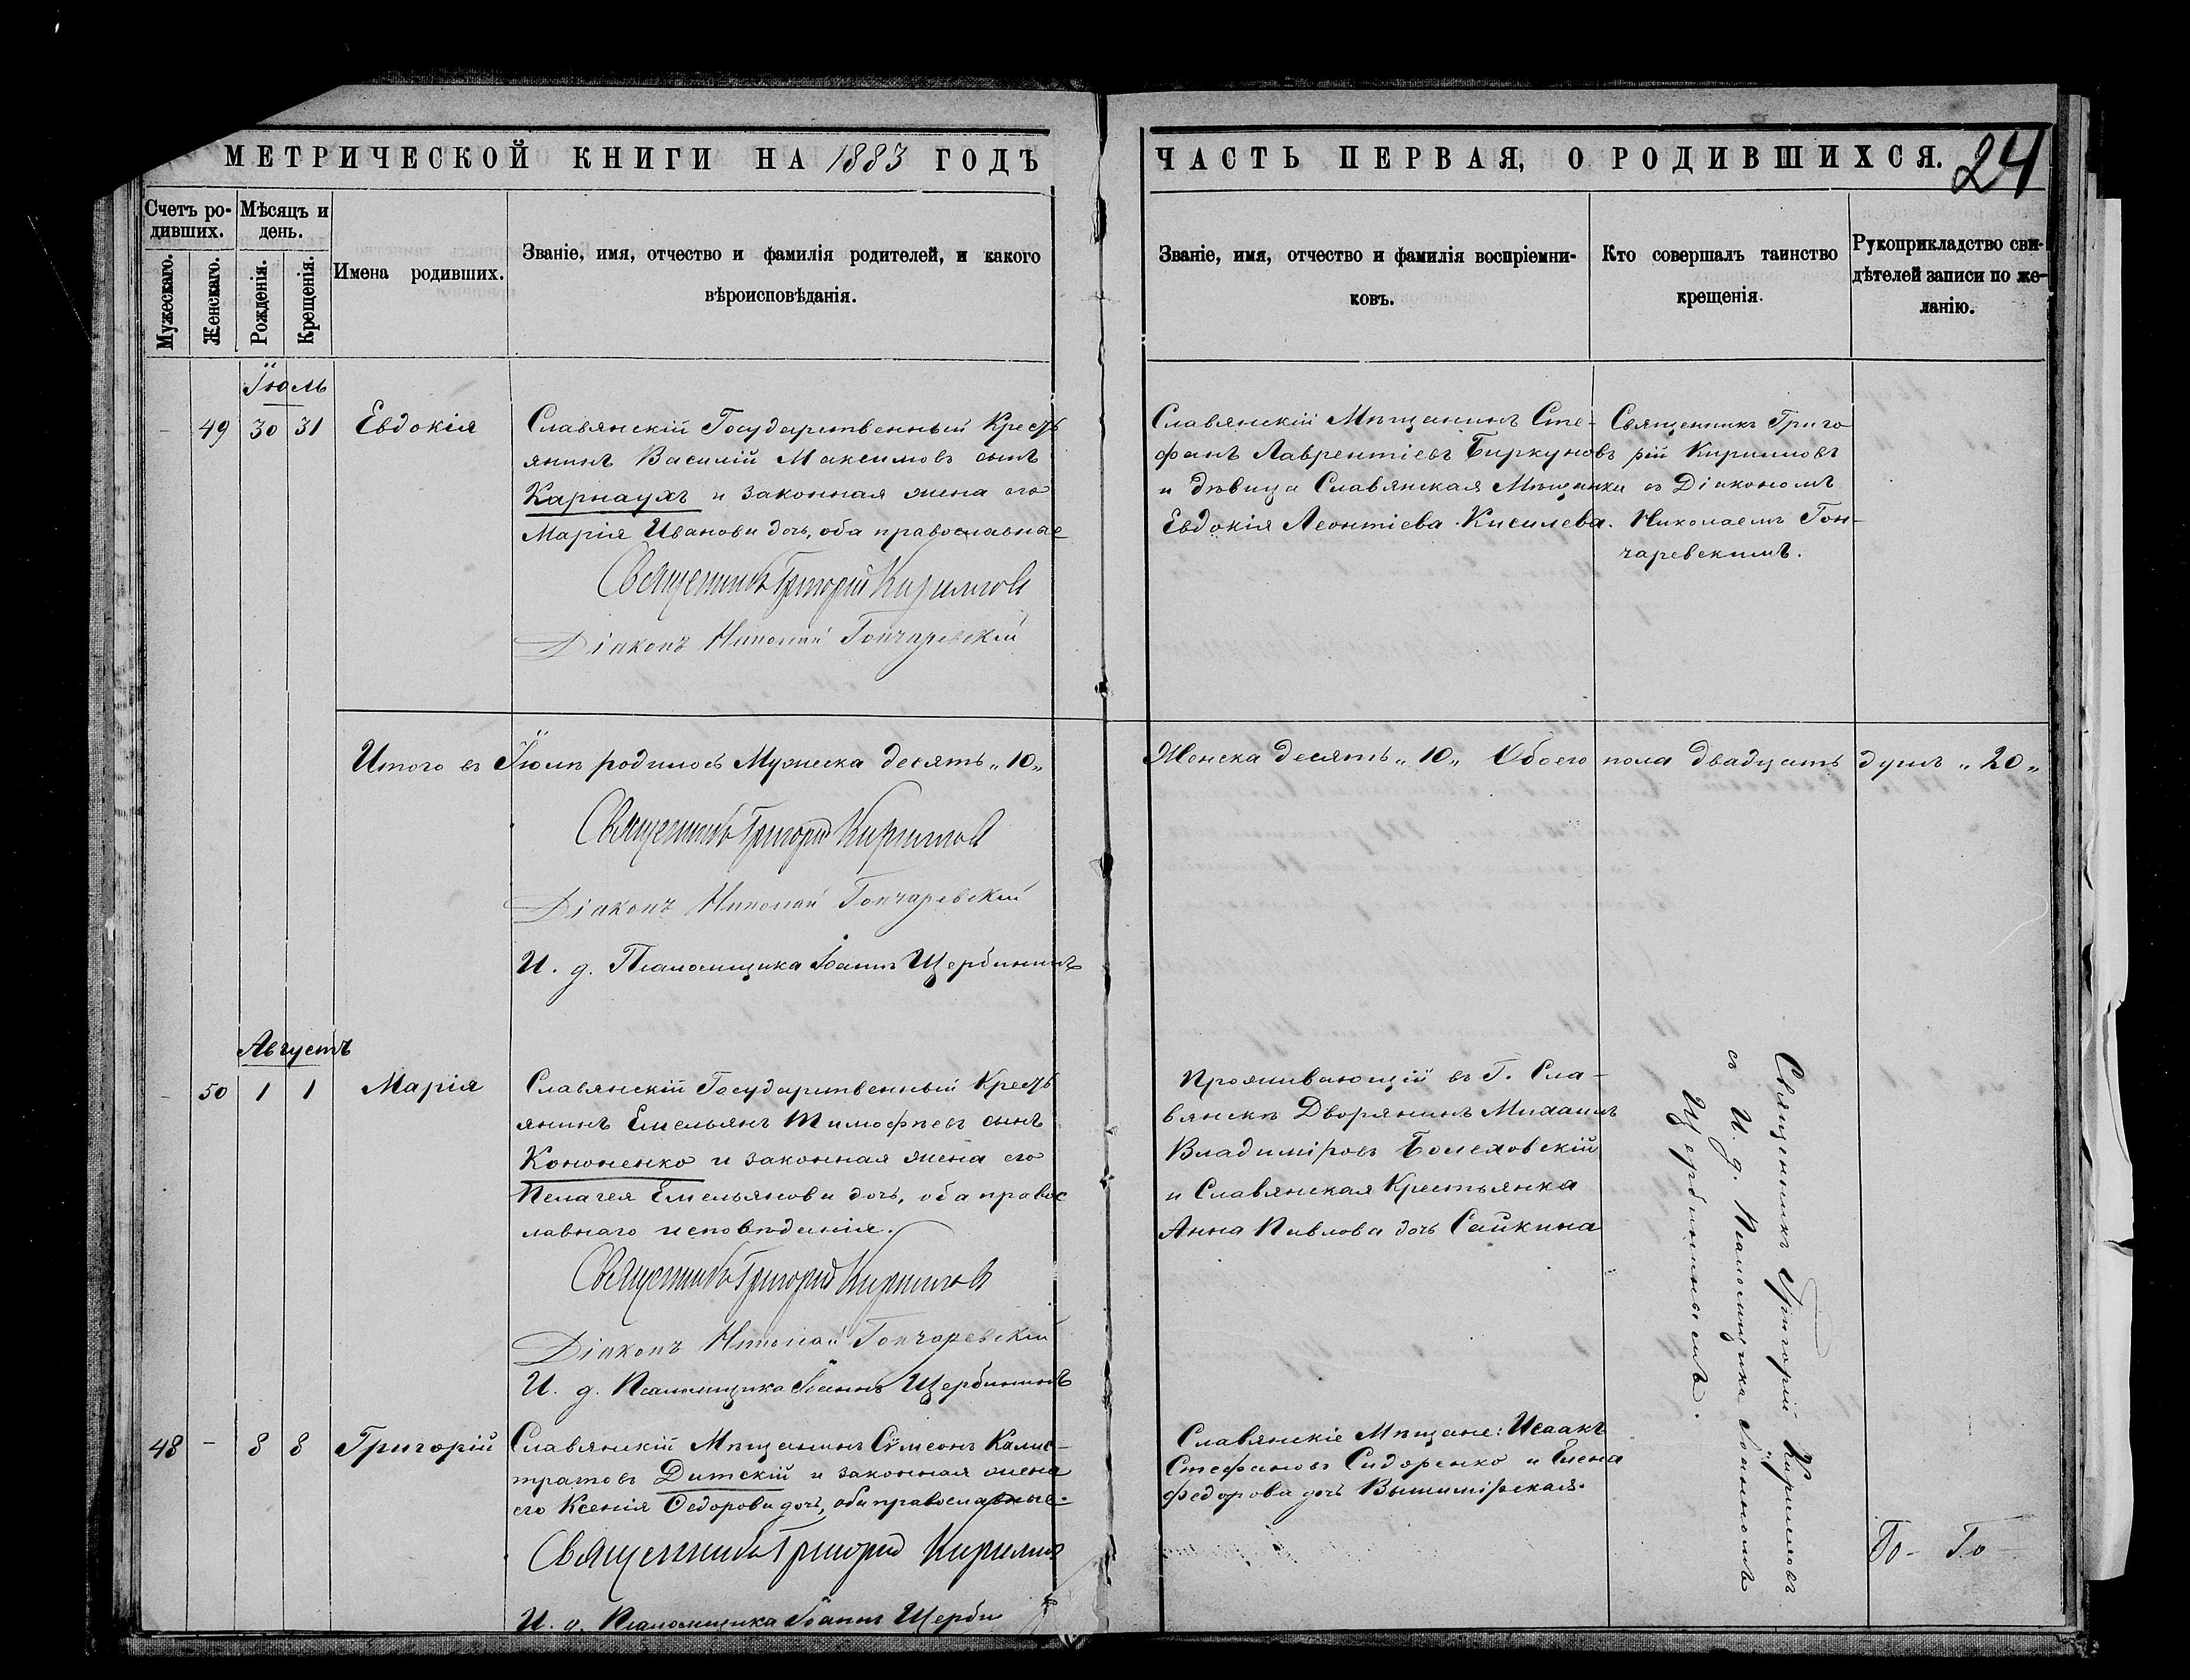 МЕТРИЧЕСКОЙ КНИГИ НА 1883 ГОДЪ
ЧАСТЬ ПЕРВАЯ, О РОДИВШИХСЯ. 24
Счетъ ро-
дившихъ.
Мужескаго.
Женскаго.
Мѣсяцъ и
день.
Рожденія.
Крещенія.
Имена родившихъ.
Званіе, имя, отчество и фамилія родителей, и какого
вѣроисповѣданія.
Званіе, имя, отчество и фамилія воспріемни-
ковъ.
Кто совершалъ таинство
крещенія.
Рукоприкладство сви-
дѣтелей записи по же-
ланію.
Іюль
49 30 31 Евдокія
Славянскій Государственный Кресть
янинъ Василій Максимовъ сынъ
Карнаухъ и законная жена его
Марія Иванова дочь, оба православные
Священникъ Григорій Кириловъ
Діаконъ Николай Гончаревскій
Славянскій Мѣщанинъ Сте-
фанъ Лаврентіевъ Биркуновъ
и дѣвица Славянская Мѣщанка
Евдокія Леонтіева Кисилева.
Священникъ Григо
рій Кирилловъ
съ Діакономъ
Николаемъ Гон-
чаревскимъ.
Итого въ Іюлѣ родилось Мужеска десять „10„ Женска десять „10„ Обоего пола двадцать душъ „20„
Священникъ Григорій Кириловъ
Діаконъ Николай Гончаревскій
И. д. Псаломщика Іоаннъ Щербининъ
Августъ
50 1 1 Марія
Славянскій Государственный Кресть
янинъ Емельянъ Тимофѣевъ сынъ
Кононенко и законная жена его
Пелагея Емельянова дочь, оба правос
лавнаго исповѣданія.
Священникъ Григорій Кириловъ
Діаконъ Николай Гончаревскій
И. д. Псаломщика Іоаннъ Щербининъ
Проживающій въ Г. Сла-
вянскѣ Дворянинъ Михаилъ
Владиміровъ
и Славянская Крестьянка
Анна Павлова дочь Сайкина
Священникъ Григорій Кирилловъ
съ И. д. Псаломщика Іоанномъ
Щербининымъ.
48 - 8 8 Григорій
Славянскій Мѣщанинъ Сѵмеонъ Калис-
тратовъ Дитскій и законная жена
его Ксенія Федорова дочь, оба православные.
Священникъ Григорій Кирилов
И. д. Псаломщика Іоаннъ Щерби
Славянскіе Мѣщане: Исаакъ
Стефановъ Сидоренко и Елена
Федорова дочь